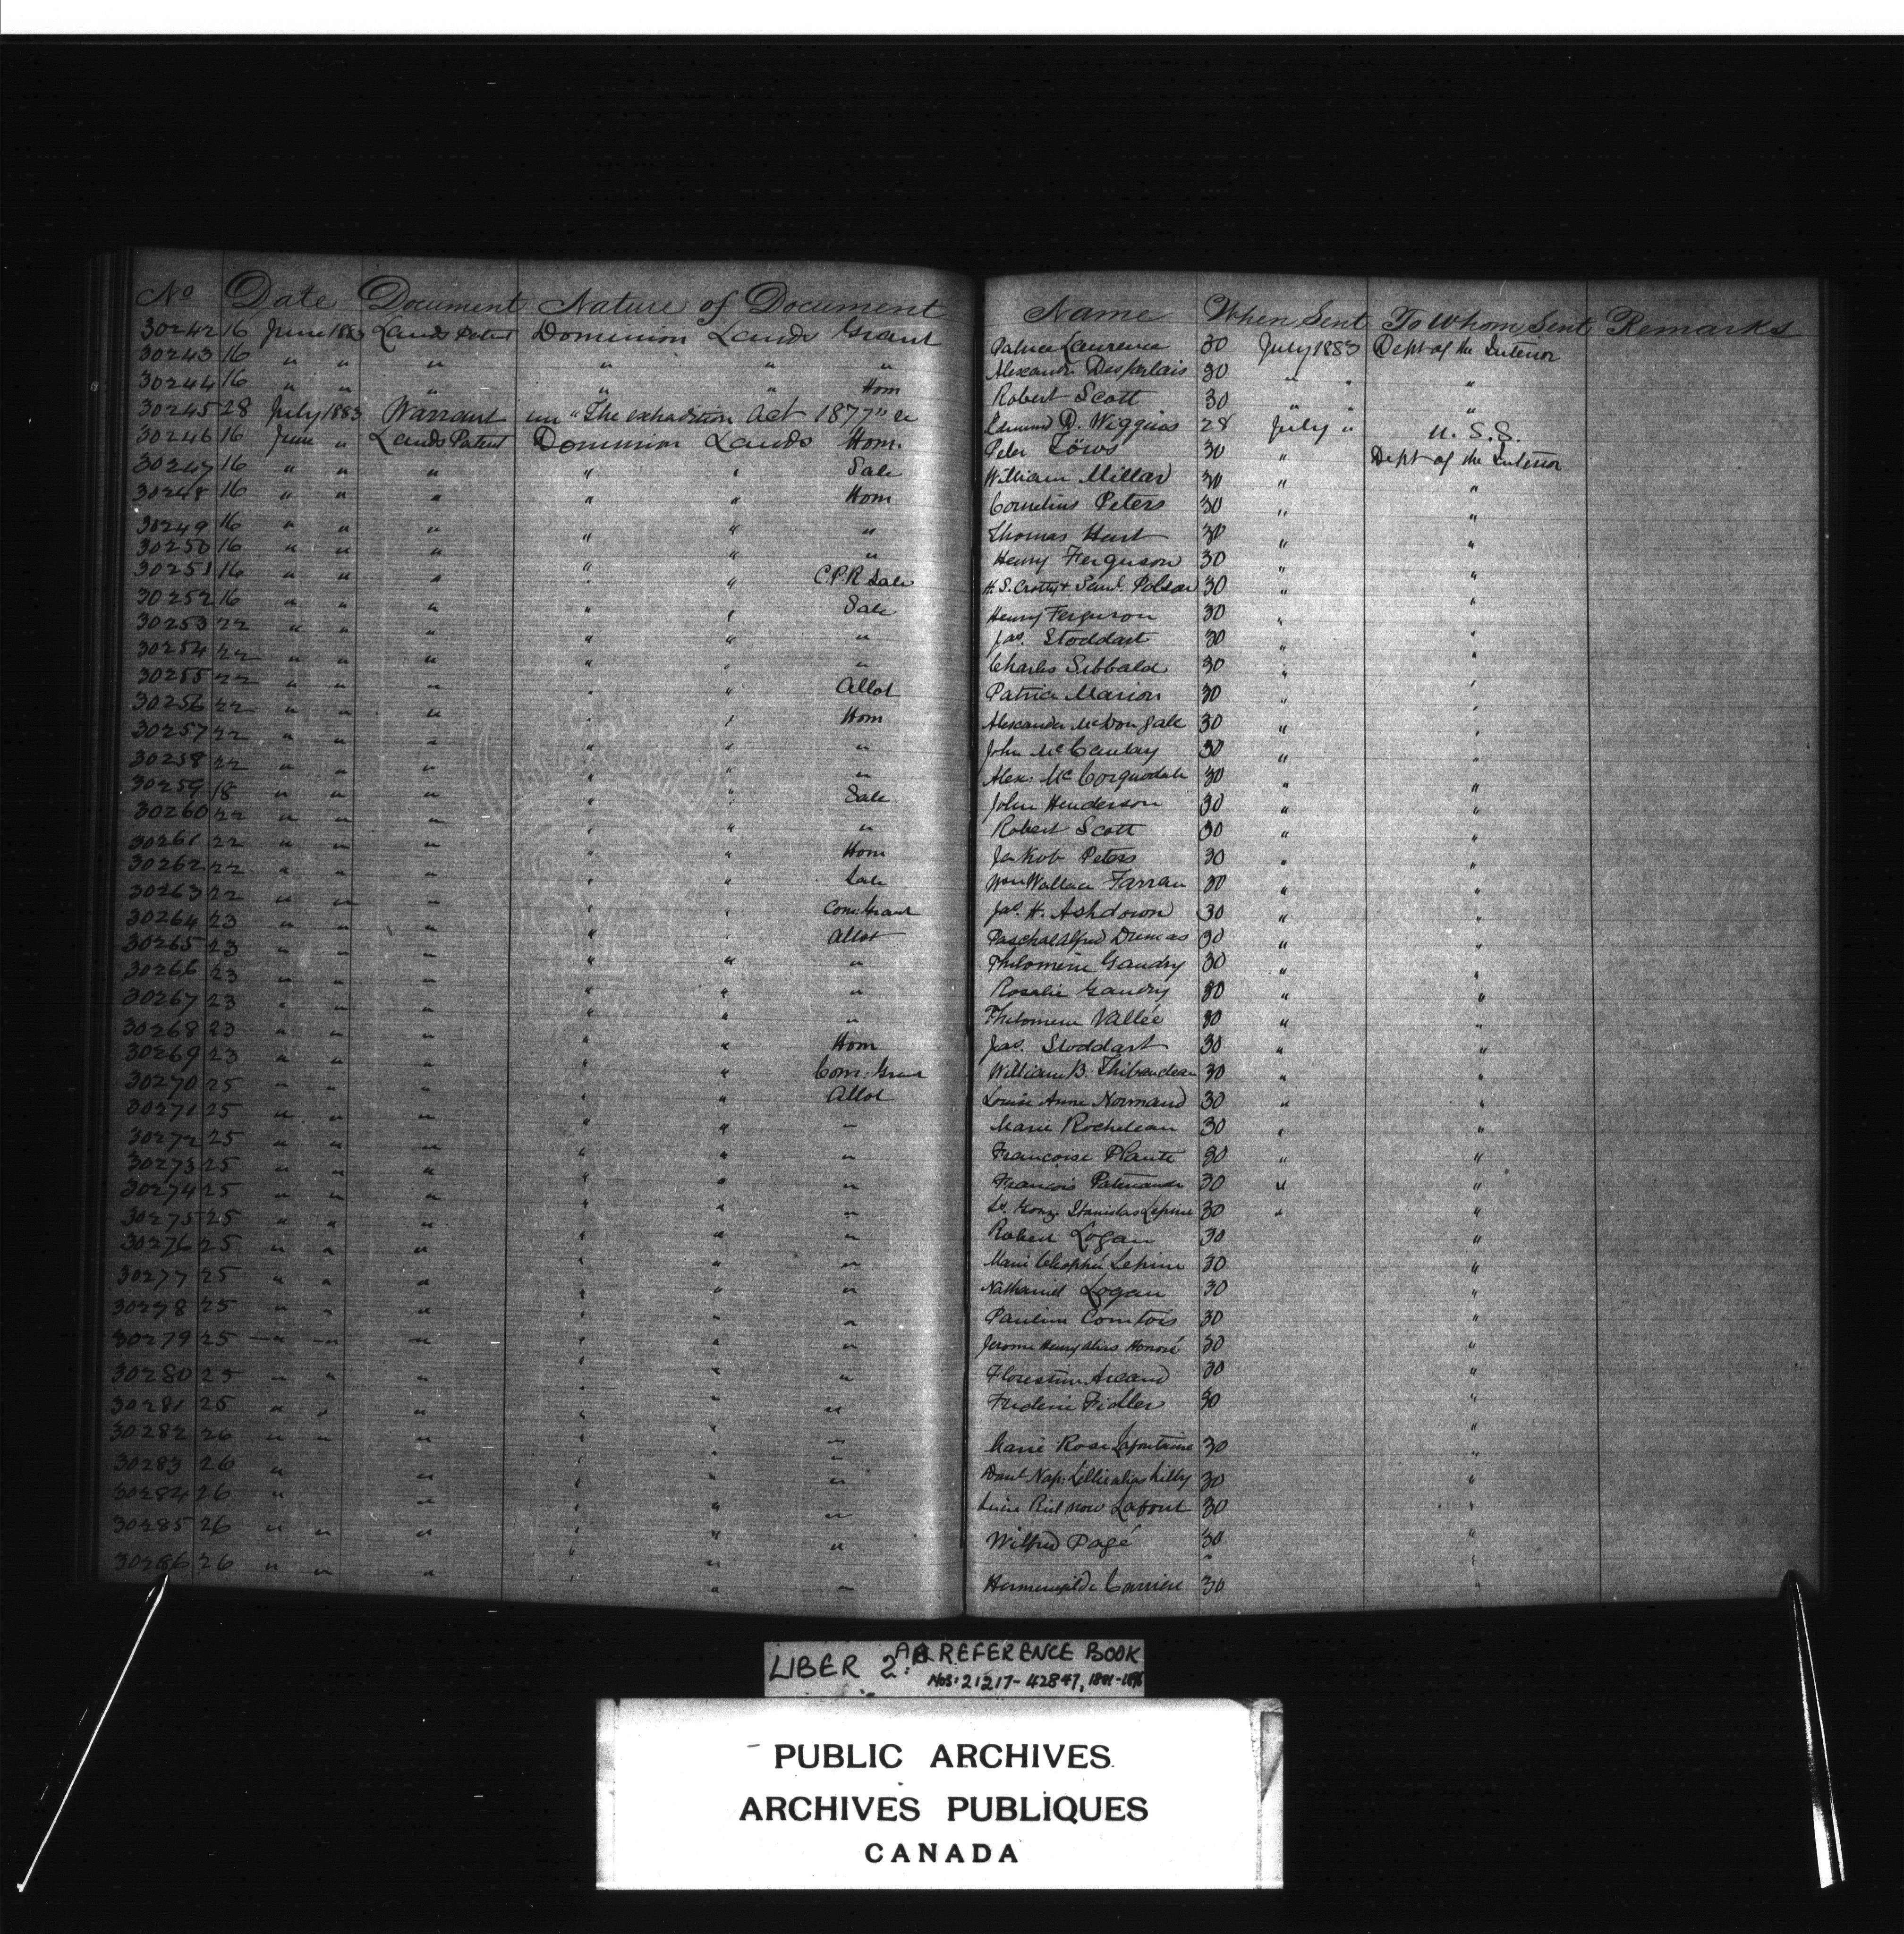 No Date Document Nature of Document Name When Sent To Whom Sent Remarks
30242 16 June 1883 Lands Patent Dominion Lands Grant Patrice Laurence 30 July 1883 Dept of the Interior
30243 16 " " " " " " Alexandre Desjarlais 30 " " "
30244 16 " " " " " Hom Robert Scott 30 " " "
30245 28 July 1883 Warrant un "The extradition Act 1877" &c Edmund D. Wiggins 28 July " U. S. S.
30246 16 June " Lands Patent Dominion Lands Hom. Peter Töws 30 " Dept of the Interior
30247 16 " " " " " Sale William Millar 30 " "
30248 16 " " " " " Hom Cornelius Peters 30 " "
30249 16 " " " " " " Thomas Hunt 30 " "
30250 16 " " " " " " Henry Ferguson 30 " "
30251 16 " " " " " C.P.R Sale H. S. Crotty & Saml. Polson 30 " "
30252 16 " " " " " Sale Henry Ferguson 30 " "
30253 22 " " " " " " Jas. Stoddart 30 " "
30254 22 " " " " " " Charles Sibbald 30 " "
30255 22 " " " " " Allot Patrice Marion 30 " "
30256 22 " " " " " Hom Alexander McDougall 30 " "
30257 22 " " " " " " John McCaulay 30 " "
30258 22 " " " " " " Alex: McCorquodale 30 " "
30259 18 " " " " " Sale John Henderson 30 " "
30260 22 " " " " " " Robert Scott 30 " "
30261 22 " " " " " Hom Jakob Peters 30 " "
30262 22 " " " " " Sale Wm Wallace Farran 30 " "
30263 22 " " " " " Com: Grant Jas. H. Ashdown 30 " "
30264 23 " " " " " Allot Paschal Alfred Dumas 30 " "
30265 23 " " " " " " Philomène Gaudry 30 " "
30266 23 " " " " " " Rosalie Gaudry 30 " "
30267 23 " " " " " " Philomene Vallée 30 " "
30268 23 " " " " " Hom Jas. Stoddart 30 " "
30269 23 " " " " " Com: Grant William B. Thibaudeau 30 " "
30270 25 " " " " " Allot Louise Anne Normand 30 " "
30271 25 " " " " " " Marie Rocheleau 30 " "
30272 25 " " " " " " Francoise Plante 30 " "
30273 25 " " " " " " François Patenaude 30 " "
30274 25 " " " " " " Gonz. Stanislas Lepine 30 " "
30275 25 " " " " " " Robert Logan 30 "
30276 25 " " " " " " Marie Lepine 30 "
30277 25 " " " " " " Nathaniel Logan 30 "
30278 25 " " " " " " Pauline Comtois 30 "
30279 25 " " " " " " Jerome Henry alias Honoré 30 "
30280 25 " " " " " " Florestine Arcand 30 "
30281 25 " " " " " " Frederic Fidler 30 "
30282 26 " " " " " " Marie Rose Lafontaine 30 "
30283 26 " " " " " Danl Nap: Lillie alias Lilly 30 "
30284 26 " " " " " Riel now Lafont 30 "
30285 26 " " " " " " Wilfred Pagé 30 "
30286 26 " " " " " " Hermenegilde Carriere 30 "
LIBER 2: REFERENCE BOOK
NOS: 21217-42847,
PUBLIC ARCHIVES
ARCHIVES PUBLIQUES
CANADA